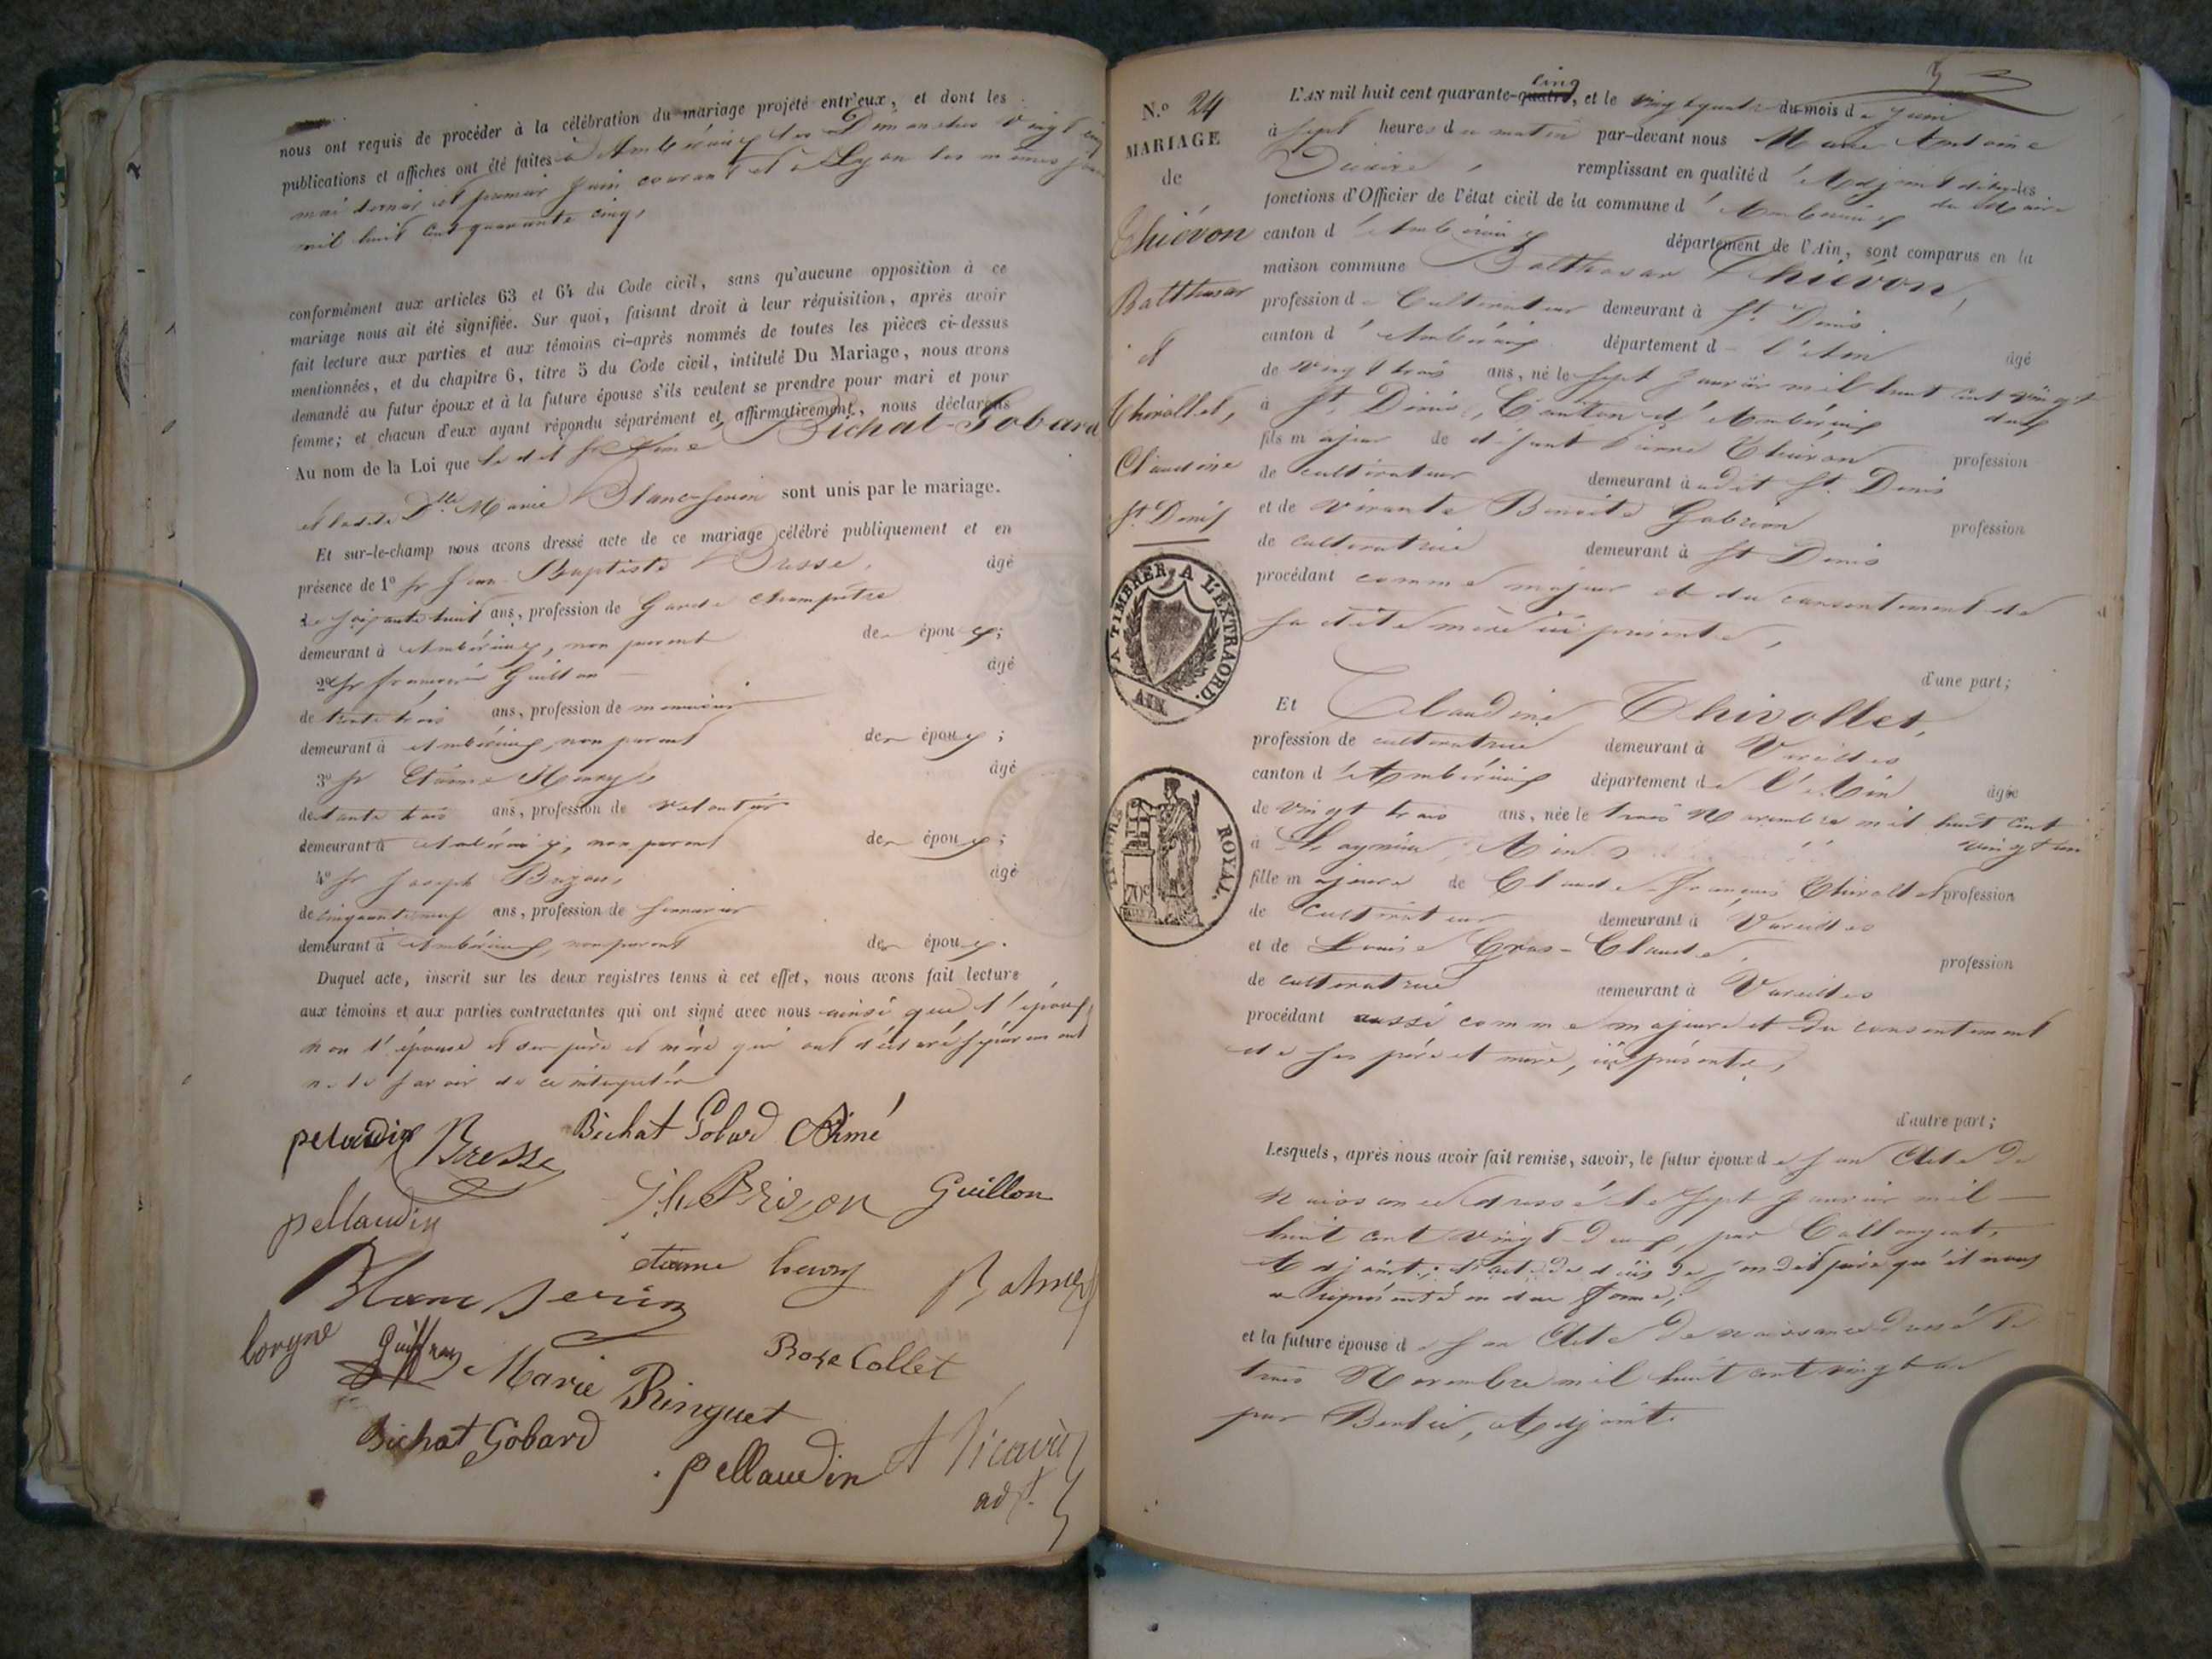 nous ont requis de procéder à la célébration du mariage projeté entr'eux, et dont les
publications et affiches ont été faites à Ambérieux les Dimanches Vingt cinq
mai dernier et premier Juin courant et à Lyon les mêmes jours
mil huit cent quarante cinq,
conformément aux articles 63 et 64 du Code civil, sans qu'aucune opposition à ce
mariage nous ait été signifiée. Sur quoi, faisant droit à leur réquisition, après avoir
fait lecture aux parties et aux témoins ci-après nommés de toutes les pièces ci-dessus
mentionnées, et du chapitre 6, titre 5 du Code civil, intitulé Du Mariage, nous avons
demandé au futur époux et à la future épouse s'ils veulent se prendre pour mari et pour
femme; et chacun d'eux ayant répondu séparément et affirmativement, nous déclarons
Au nom de la Loi que le dit Sr Aimé Bichat-Gobard
et ladite Dlle Marie Blanc-Serrin sont unis par le mariage.
Et sur-le-champ nous avons dressé acte de ce mariage célébré publiquement et en
présence de 1° Sr Jean-Baptiste Bresse, âgé
de soixante huit ans, profession de Garde Champêtre
demeurant à Ambérieux, non parent des époux;
2° Sr François Guillon âgé
de trente trois ans, profession de menuisier
demeurant à Ambérieux, non parent des époux;
3° Sr Etienne Henry, âgé
de trente trois ans, profession de
demeurant à Ambérieux, non parent des époux;
4° Sr Joseph Brizon, âgé
de cinquante neuf ans, profession de
demeurant à Ambérieux, non parent des époux.
Duquel acte, inscrit sur les deux registres tenus à cet effet, nous avons fait lecture
aux témoins et aux parties contractantes qui ont signé avec nous ainsi que l'époux,
non l'épouse et ses père et mère qui ont déclaré séparément
ne le savoir de ce interpellés
pelaudin Bresse Bichat Gobard Aimé
pellaudin Jh Brizon Guillon
Blanc Serrin etienne henry
borgne Guiffray Marie Ringuet Rose Collet
Bichat Gobard pellaudin
adt.
N.° 24
MARIAGE
de
Thiévon
Balthasar
et
Thivollet,
Claudine
St Denis
A TIMBRER A L'EXTRAORD.
AIN
TIMBRE ROYAL.
70c
L'AN mil huit cent quarante-quatre cinq, et le vingt quatre du mois de Juin
à sept heures du matin par-devant nous Marie Antoine
remplissant en qualité d'Adjoint délégué les
fonctions d'Officier de l'état civil de la commune d'Ambérieux du Maire
canton d'Ambérieux département de l'Ain, sont comparus en la
maison commune Balthasar Thiévon,
profession de Cultivateur demeurant à St Denis
canton d'Ambérieux département de l'Ain âgé
de vingt trois ans, né le sept Janvier mil huit cent vingt
à St Denis, Canton d'Ambérieux deux
fils majeur de défunt Pierre Thiévon profession
de cultivateur demeurant à udit St Denis
et de vivante Benoite Gabrion profession
de cultivatrice demeurant à St Denis
procédant comme majeur et du consentement de
sa dite mère ici présente,
d'une part;
Et Claudine Thivollet,
profession de cultivatrice demeurant à Vareilles
canton d'Ambérieux département de l'Ain âgée
de vingt trois ans, née le trois Novembre mil huit cent
à Lagnieu, Ain vingt un
fille majeure de Claude-François Thivollet profession
de cultivateur demeurant à Vareilles
et de Louise Gros-Claude, profession
de cultivatrice demeurant à Vareilles
procédant aussi comme majeure et du consentement
de ses père et mère, ici présents,
d'autre part;
Lesquels, après nous avoir fait remise, savoir, le futur époux de son Acte de
naissance dressé le sept Janvier mil
huit cent vingt-deux, par
Adjoint; l'acte de décès de son dit père qu'il nous
a représenté en due forme;
et la future épouse de son Acte de naissance dressé le
trois Novembre mil huit cent vingt un
par Adjoint.